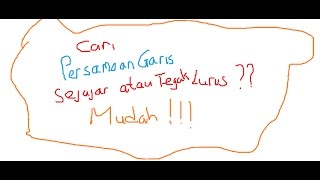 Cari
Persamaan Garis
Sejajar atau Tegak Lurus ??
Mudah !!!